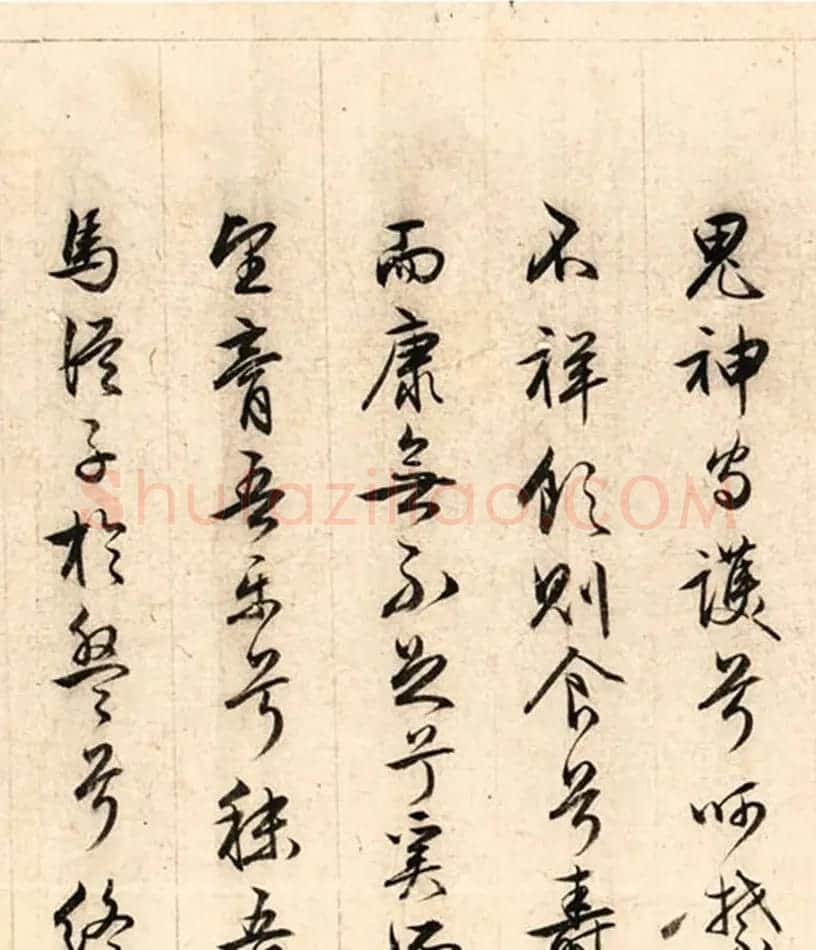 鬼神守護兮呵
不祥飲則食兮壽
而康無不足兮奚
望膏吾車兮秣吾
馬從子於盤兮終
Shufaziliao.COM